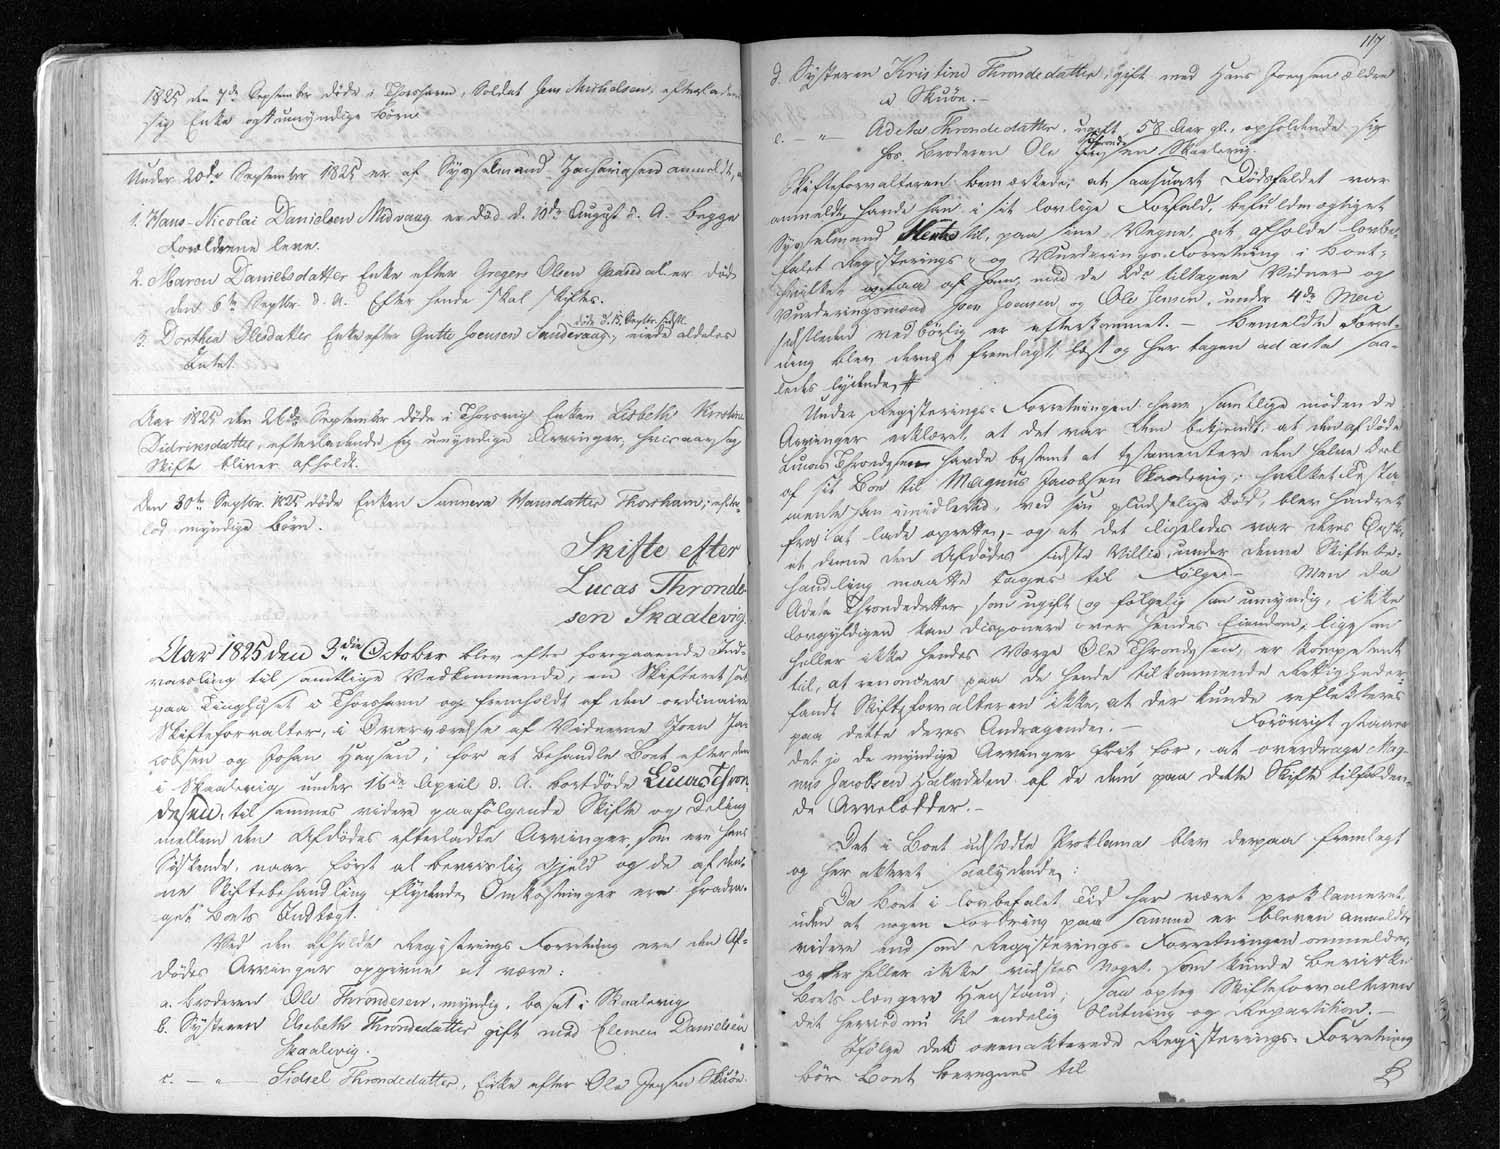 1825 den 7de September døde i Thorshavn, Soldat Jens Michelsen, efterladende
sig Enke og umyndige Børn.
Under 20de September 1825 er af Sysselmand Zachariasen anmeldt, at
1. Hans Nicolai Danielsen Midvaag er død d. 10de August d. A. begge
Forældrene leve.
2. Maren Danielsdatter Enke efter Gregers Olsen Gaasedal er død
den 6te Septbr. d. A. Efter hende skal skiftes.
3. Dorthea Olesdatter Enke efter Gutte Joensen Sandevaag, døde d. 15 Septbr. sidstl. eiede aldeles
Intet.
Aar 1825 den 26de September døde i Thorsvig Enken Lisbeth Kirstine
Didriksdatter, efterladende sig umyndige Arvinger, hvoraf og
Skifte bliver afholdt.
Den 30te Septbr. 1825 døde Enken Sunneva Hansdatter Thorshavn; efter-
lod myndige Børn.
Skifte efter
Lucas Thronde-
sen Skaalevig.
Aar 1825 den 3die October blev efter foregaaende Ind-
varsling til samtlige Vedkommende, en Skifteret sat
paa Tinghuset i Thorshavn og fremholdt af den ordinaire
Skifteforvalter, i Overværelse af Vidnerne Joen Ja-
cobsen og Johan Hansen, for at behandle Boet efter den
i Skaalevig under 16de April d. A. bortdøde Lucas Thron-
desen, til sammes videre paafølgende Skifte og Deling
mellem den Afdødes efterladte Arvinger, som ere hans
Sødskende, naar først al beviislig Gjeld og de af den-
ne Skiftebehandling flydende Omkostninger ere fradra-
get Boets Indtægt.
Ved den afholdte Registrerings Forretning ere den Af-
dødes Arvinger opgivne at være:
a. Broderen Ole Throndesen, myndig, boesat i Skaalevig
b. Systeren Elsebeth Throndedatter gift med Clemen Danielsen
Skaalevig.
c. — " — Sidsel Throndedatter, Enke efter Ole Jensen Skuøe.
117
d. Systeren Kristine Throndedatter, gift med Hans Joensen ældre
a Skuøe.—
e. — " — Adeta Throndedatter, ugift 58 Aar gl., opholdende sig
hos Broderen Ole Thronde Jensen Skaalevig.
Skifteforvalteren bemærkede, at saasnart Dødsfaldet var
anmeldt, havde han i sit lovlige Forfald, befuldmægtiget
Sysselmand til, paa sine Vegne, at afholde lovbe-
falet Registerings- og Vurderings-Forretning i Boet,
hvilket ogsaa af ham, med de 2de tiltagne Vidner og
Vurderingsmænd Joen Joensen og Ole Jensen, under 4de Mai
sidstleden vedbørlig er efterkommet.— Bemeldte Forret-
ning blev dernæst fremlagt, læst og her tagen ad acta saa-
ledes lydende,
Under Registerings-Forretningen have samtlige mødende
Arvinger erklæret, at det var dem bekjendt, at den afdøde
Lucas Throndesen havde bestemt at testamentere den halve Deel
af sit Boe til Magnus Jacobsen Skaalevig; hvilket Testa-
mente han imidlertid, ved sin pludselige Død, blev hindret
fra at lade oprette,— og at det ligeledes var deres Ønske,
at denne den Afdødes sidste Villie, under denne Skiftebe-
handling maatte tages til Følge.— Men da
Adeta Throndedatter som ugift, og følgelig som umyndig, ikke
lovgyldigen kan disponere over hendes Eiendom, ligesom
heller ikke hendes Værge Ole Throndesen, er kompetent
til, at renoncere paa de hende tilkommende Rettigheder,
fandt Skifteforvalteren ikke, at der kunde reflekteres
paa dette deres Andragende.— Forøvrigt staaer
det jo de myndige Arvinger frit for, at overdrage Mag-
nus Jacobsen Halvdelen af de dem paa dette Skifte tilfalden-
de Arvelodder.—
Det i Boet udstædte Proklama blev derpaa fremlagt
og her akteret saalydende:
Da Boet i lovbefalet Tid har været proklameret,
uden at nogen Fordring paa samme er bleven anmeldt
videre end som Registerings-Forretningen ommelder,
og her heller ikke vidstes Noget, som kunde bevirke
Boets længere Henstand; saa optog Skifteforvalteren
det herved nu til endelig Slutning og Repartition.—
Ifølge det ovenakterede Registerings-Forretning
bør Boet beregnes til